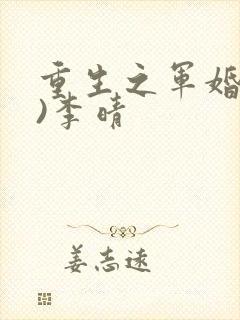 重生之军婚
)李晴
姜志远